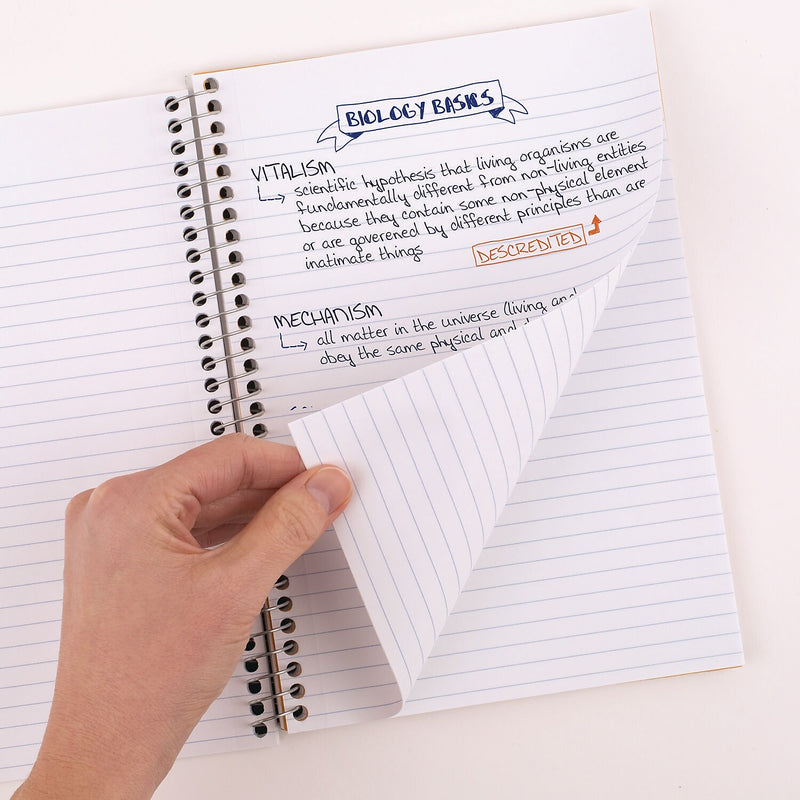 BIOLOGY BASICS
VITALISM
scientific hypothesis that living organisms are
fundamentally different from non-living entities
because they contain some non-physical element
or are goverened by different principles than are
inatimate things
DESCREDITED
MECHANISM
all matter in the universe (living and
obey the same physical and